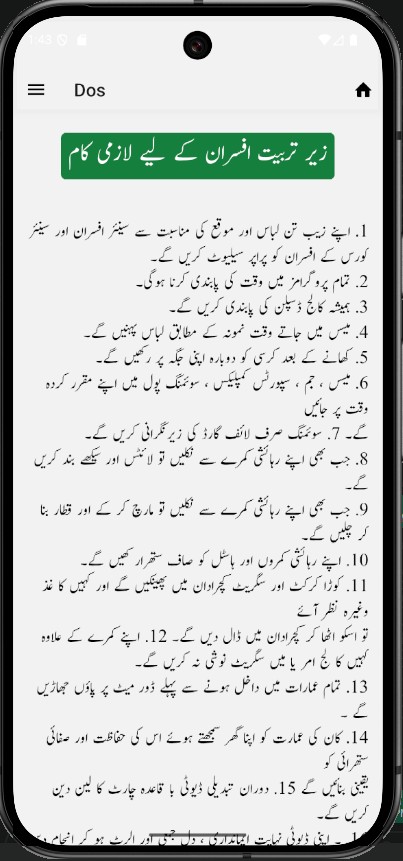 1:43
Dos
زیر تربیت افسران کے لیے لازمی کام
1. اپنے زیب تن لباس اور موقع کی مناسبت سے سینئر افسران اور سینئر
کورس کے افسران کو پراپر سیلیوٹ کریں گے۔
2. تمام پروگرامز میں وقت کی پابندی کرنا ہوگی۔
3. ہمیشہ کالج ڈسپلن کی پابندی کریں گے۔
4. میس میں جاتے وقت نمونہ کے مطابق لباس پہنیں گے۔
5. کھانے کے بعد کرسی کو دوبارہ اپنی جگہ پر رکھیں گے۔
6. میس ، جم ، سپورٹس کمپلیکس ، سوئمنگ پول میں اپنے مقرر کردہ
وقت پر جائیں
گے۔ 7. سوئمنگ صرف لائف گارڈ کی زیرنگرانی کریں گے۔
8. جب بھی اپنے رہائشی کمرے سے نکلیں تو لائٹس اور پنکھے بند کریں
گے۔
9. جب بھی اپنے رہائشی کمرے سے نکلیں تو مارچ کر کے اور قطار بنا
کر چلیں گے۔
10. اپنے رہائشی کمروں اور ہاسٹل کو صاف ستھرار کھیں گے۔
11. کوڑا کرکٹ اور سگریٹ کچرادان میں پھینکیں گے اور کہیں کا غذ
وغیرہ نظر آئے
تو اسکو اٹھا کر کچرادان میں ڈال دیں گے۔ 12. اپنے کمرے کے علاوہ
کہیں کا لج امر یا میں سگریٹ نوشی نہ کریں گے۔
13. تمام عمارات میں داخل ہونے سے پہلے ڈور میٹ پر پاؤں جھاڑیں
گے ۔
14. کان کی عمارت کو اپنا گھر سمجھتے ہوئے اس کی حفاظت اور صفائی
ستھرائی کو
یقینی بنائیں گے 15. دوران تبدیلی ڈیوٹی با قاعدہ چارٹ کا لین دین
کریں گے۔
16. ۔ اپنی ڈیوٹی نہایت ایمانداری ، دل جمعی اور الرٹ ہو کر انجام دیں